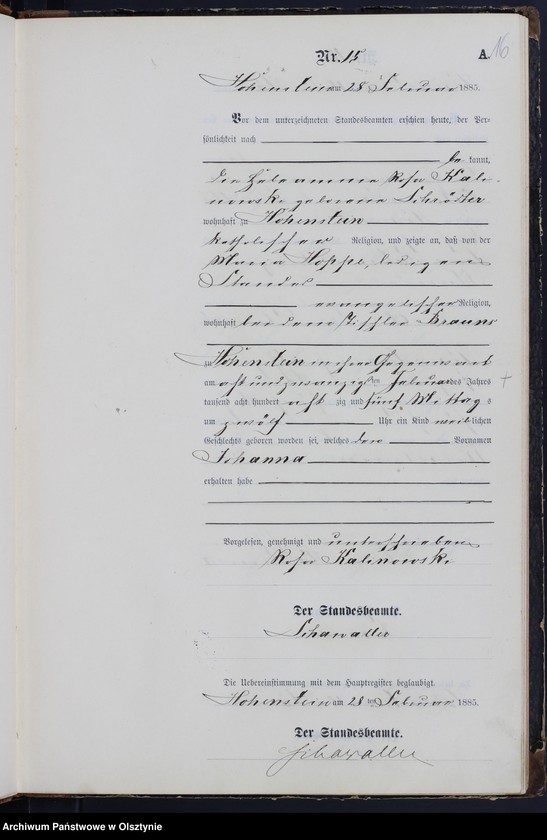 16
Nr. 15
A.
Hohenstein am 28 Februar 1885.
Vor dem unterzeichneten Standesbeamten erschien heute, der Per-
sönlichkeit nach
be kannt,
die Hebeamme Rosa Kali-
nowski geborene Schröter
wohnhaft zu Hohenstein
katholischer Religion, und zeigte an, daß von der
Maria Hoppe, ledigen
Standes
evangelischer Religion,
wohnhaft bei dem Tischler Brauns
zu Hohenstein in ihrer Gegenwart
am acht und zwanzig ten Februar des Jahres
tausend acht hundert acht zig und fünf Mittags
um zwölf Uhr ein Kind weiblichen
Geschlechts geboren worden sei, welches den Vornamen
Johanna
erhalten habe
Vorgelesen, genehmigt und unterschrieben
Rosa Kalinowski
Der Standesbeamte.
Schawaller
Die Uebereinstimmung mit dem Hauptregister beglaubigt.
Hohenstein am 28 ten Februar 1885.
Der Standesbeamte.
Schawaller
Archiwum Państwowe w Olsztynie